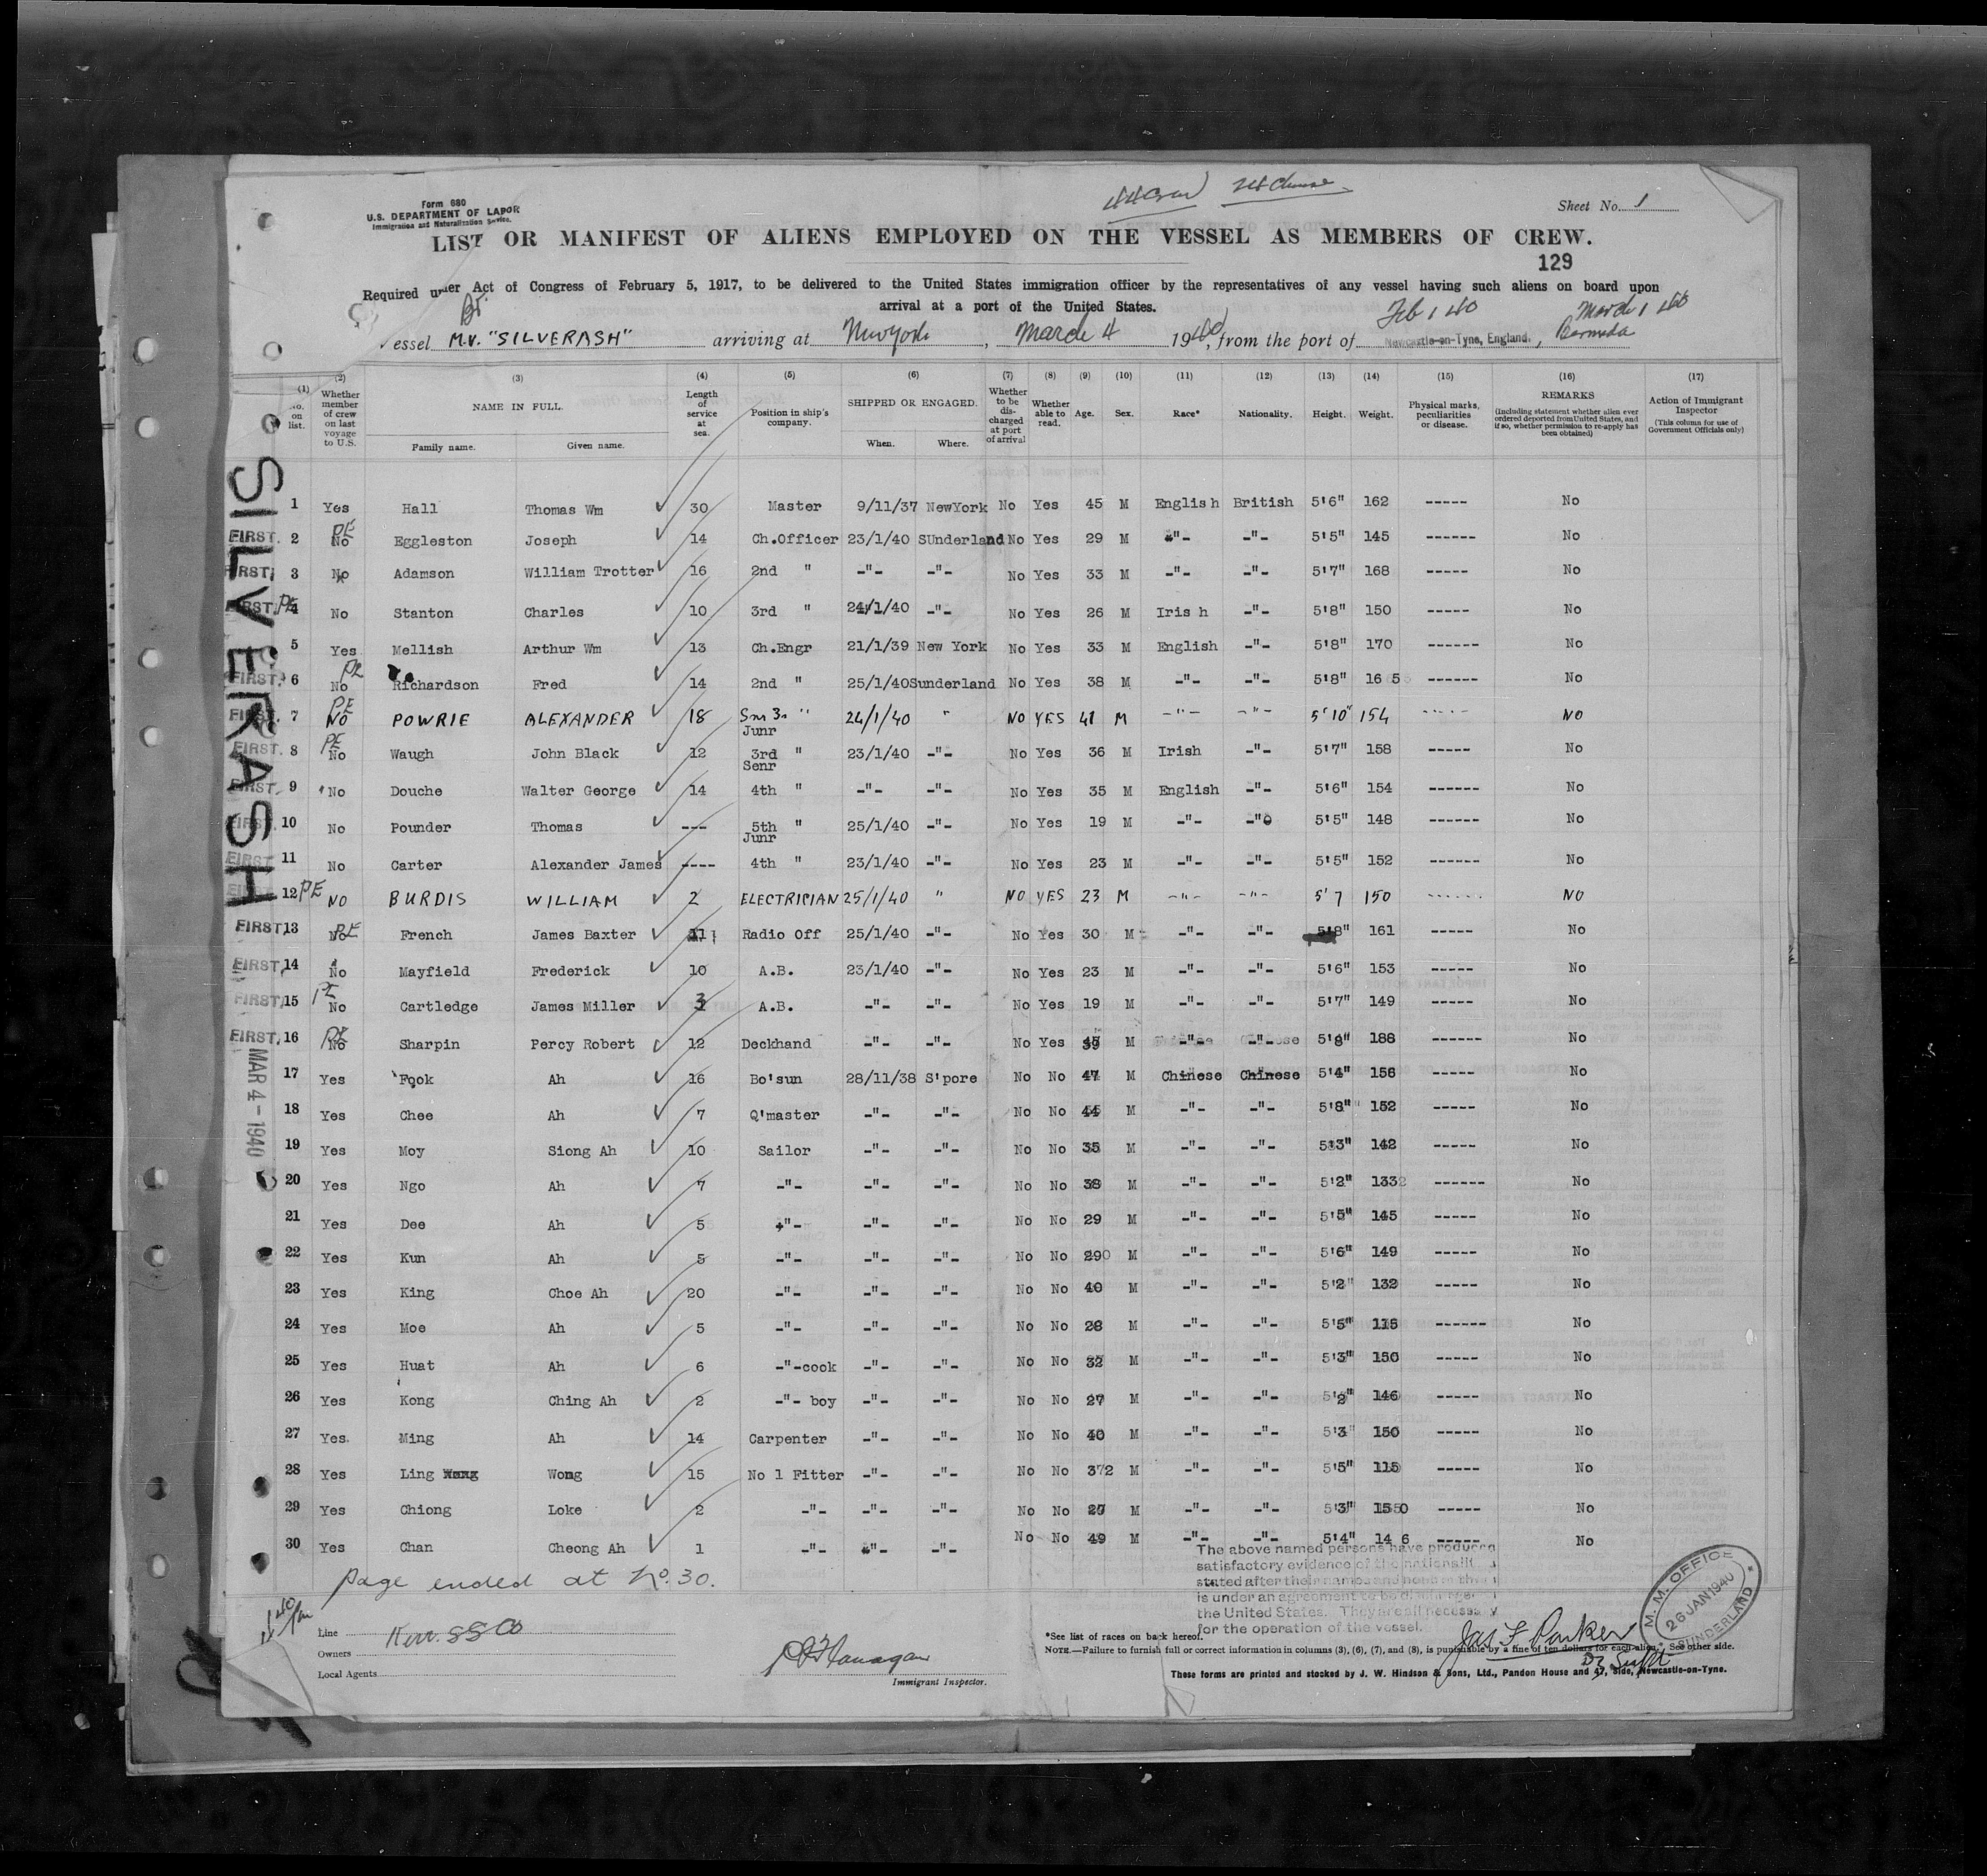 Form 680
U.S. DEPARTMENT OF LABOR
Immigration and Naturalization Service.
Sheet No. 1
LIST OR MANIFEST OF ALIENS EMPLOYED ON THE VESSEL AS MEMBERS OF CREW.
129
Required under Act of Congress of February 5, 1917, to be delivered to the United States immigration officer by the representatives of any vessel having such aliens on board upon
arrival at a port of the United States.
Br. Feb 1 40 March 1 40
essel M.V. "SILVERASH" arriving at New York, March 4 1940, from the port of Newcastle-on-Tyne, England., Bermuda
(1) No. on list. (2) Whether member of crew on last voyage to U.S. (3) NAME IN FULL. Family name. Given name. (4) Length of service at sea. (5) Position in ship's company. (6) SHIPPED OR ENGAGED. When. Where. (7) Whether to be discharged at port of arrival (8) Whether able to read. (9) Age. (10) Sex. (11) Race* (12) Nationality. (13) Height. (14) Weight. (15) Physical marks, peculiarities or disease. (16) REMARKS (Including statement whether alien ever ordered deported from United States, and if so, whether permission to re-apply has been obtained) (17) Action of Immigrant Inspector (This column for use of Government Officials only)
SILVERASH
MAR 4 - 1940
1 Yes Hall Thomas Wm 30 Master 9/11/37 NewYork No Yes 45 M English British 5'6" 162 ----- No
FIRST. 2 PE No Eggleston Joseph 14 Ch.Officer 23/1/40 SUnderland No Yes 29 M -"- -"- 5'5" 145 ------ No
FIRST. 3 No Adamson William Trotter 16 2nd " -"- -"- No Yes 33 M -"- -"- 5'7" 168 ----- No
FIRST. PE 4 No Stanton Charles 10 3rd " 24/1/40 -"- No Yes 26 M Iris h -"- 5'8" 150 ----- No
5 Yes Mellish Arthur Wm 13 Ch.Engr 21/1/39 New York No Yes 33 M English -"- 5'8" 170 ------ No
FIRST. 6 PE No Richardson Fred 14 2nd " 25/1/40 Sunderland No Yes 38 M -"- -"- 5'8" 16 5 ------ No
FIRST. 7 PE NO POWRIE ALEXANDER 18 Snr 3rd " 24/1/40 " NO YES 41 M -"- -"- 5'10" 154 ----- NO
FIRST. 8 PE No Waugh John Black 12 Junr 3rd " 23/1/40 -"- No Yes 36 M Irish -"- 5'7" 158 ----- No
FIRST. 9 No Douche Walter George 14 Senr 4th " -"- -"- No Yes 35 M English -"- 5'6" 154 ------ No
FIRST. 10 No Pounder Thomas --- 5th " 25/1/40 -"- No Yes 19 M -"- -"- 5'5" 148 ------ No
FIRST 11 No Carter Alexander James ---- Junr 4th " 23/1/40 -"- No Yes 23 M -"- -"- 5'5" 152 ------ No
FIRST 12 PE NO BURDIS WILLIAM 2 ELECTRICIAN 25/1/40 " NO YES 23 M -"- -"- 5'7 150 ------ NO
FIRST. 13 PE No French James Baxter 11 Radio Off 25/1/40 -"- No Yes 30 M -"- -"- 5'8" 161 ----- No
FIRST. 14 No Mayfield Frederick 10 A.B. 23/1/40 -"- No Yes 23 M -"- -"- 5'6" 153 ----- No
FIRST. 15 PE No Cartledge James Miller 3 A.B. -"- -"- No Yes 19 M -"- -"- 5'7" 149 ----- No
FIRST. 16 PE No Sharpin Percy Robert 12 Deckhand -"- -"- No Yes 39 M -"- -"- 5'8" 188 ------ No
17 Yes Fook Ah 16 Bo'sun 28/11/38 S'pore No No 47 M Chinese Chinese 5'4" 156 ----- No
18 Yes Chee Ah 7 Q'master -"- -"- No No 44 M -"- -"- 5'8" 152 ----- No
19 Yes Moy Siong Ah 10 Sailor -"- -"- No No 35 M -"- -"- 5'3" 142 ----- No
20 Yes Ngo Ah 7 -"- -"- -"- No No 38 M -"- -"- 5'2" 133 ------ No
21 Yes Dee Ah 5 -"- -"- -"- No No 29 M -"- -"- 5'5" 145 ----- No
22 Yes Kun Ah 5 -"- -"- -"- No No 29 M -"- -"- 5'6" 149 ----- No
23 Yes King Choe Ah 20 -"- -"- -"- No No 40 M -"- -"- 5'2" 132 ----- No
24 Yes Moe Ah 5 -"- -"- -"- No No 28 M -"- -"- 5'5" 115 ------ No
25 Yes Huat Ah 6 -"-cook -"- -"- No No 32 M -"- -"- 5'3" 150 ----- No
26 Yes Kong Ching Ah 2 -"- boy -"- -"- No No 27 M -"- -"- 5'2" 146 ----- No
27 Yes. Ming Ah 14 Carpenter -"- -"- No No 40 M -"- -"- 5'3" 150 ----- No
28 Yes Ling Wong 15 No 1 Fitter -"- -"- No No 37 M -"- -"- 5'5" 115 ----- No
29 Yes Chiong Loke 2 -"- -"- -"- No No 27 M -"- -"- 5'3" 150 ----- No
30 Yes Chan Cheong Ah 1 -"- -"- -"- No No 49 M -"- -"- 5'4" 14 6 ----- No
Page ended at No. 30.
The above named persons have produced
satisfactory evidence of the nationality
stated after their names and none of them
is under an agreement to be discharged in
the United States. They are all necessary
for the operation of the vessel.
M. M. OFFICE 26 JAN 1940 SUNDERLAND
Jas F Parker
Dy Supt
Line Kerr. SS Co
Owners
Local Agents
Flanagan
Immigrant Inspector.
*See list of races on back hereof.
NOTE.—Failure to furnish full or correct information in columns (3), (6), (7), and (8), is punishable by a fine of ten dollars for each alien. See other side.
These forms are printed and stocked by J. W. Hindson & Sons, Ltd., Pandon House and 47, Side, Newcastle-on-Tyne.